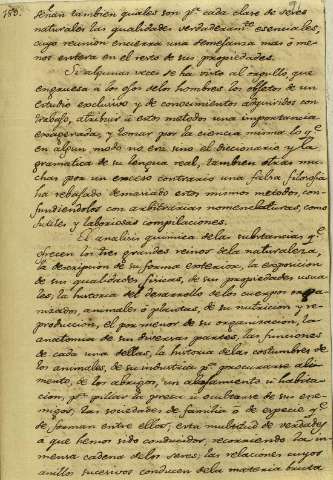 180.
señan tambien quales son p.ª cada clase de seres
naturales las qualidades verdaderam.te esenciales,
cuya reunion encierra una semejanza mas ó me-
nos entera en el resto de sus propiedades.
Si algunas veces se ha visto al orgullo, que
engruesa á los ojos de los hombres los objetos de un
estudio exclusivo y de conocimientos adquiridos con
trabajo, atribuir á estos metodos una importancia
exagerada, y tomar por la ciencia misma lo q.e
en algun modo no era sino el diccionario y la
gramatica de su lengua real, tambien otras mu-
chas por un exceso contrario una falsa filosofia
ha rebajado demasiado estos mismos metodos, con-
fundiendolos con arbitrarias nomenclaturas, como
futiles y laboriosas compilaciones.
El analisis quimica de las substancias q.e
ofrecen los tres grandes reinos de la naturaleza,
la descripcion de su forma exterior, la exposicion
de sus qualidades fisicas, de sus propiedades usua-
les, la historia del desarrollo de los cuerpos orga-
nizados, animales ó plantas, de su nutricion y re-
produccion, el por menor de su organizacion, la
anatomia de sus diversas partes, las funciones
de cada una dellas, la historia de las costumbres de
los animales, de su industria p.ª procurarse ali-
mento, de los abrigos, un alojamiento ú habita-
cion, p.ª pillar la presa ú ocultarse de sus ene-
migos, las sociedades de familia ó de especie q.e
se forman entre ellos, esta multitud de verdades
a que hemos sido conducidos, recorriendo la in-
mensa cadena de los seres; las relaciones cuyos
anillos sucesivos conducen de la materia bruta